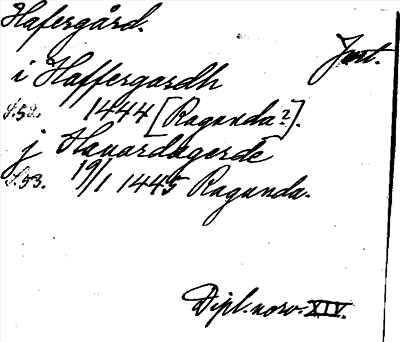 Hafergård.
Jmt.
i Haffergardh
S. 52. 1444 [Ragunda?].
j Hauardagerde
S. 53. 19/1 1445 Ragunda.
Dipl. norv. XIV.